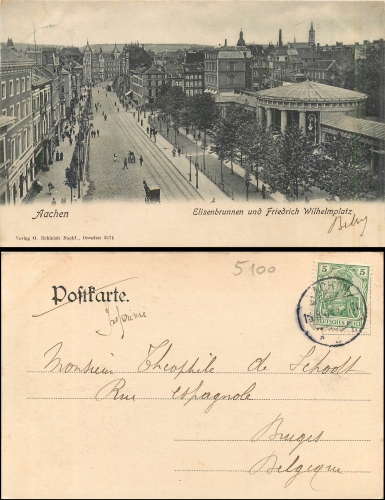 Aachen
Elisenbrunnen und Friedrich Wilhelmplatz
Verlag O. Schleich Nachf., Dresden
5100
Postkarte.
5
DEUTSCHES REICH
Monsieur Théophile de Schoodt
Rue espagnole
Bruges
Belgique